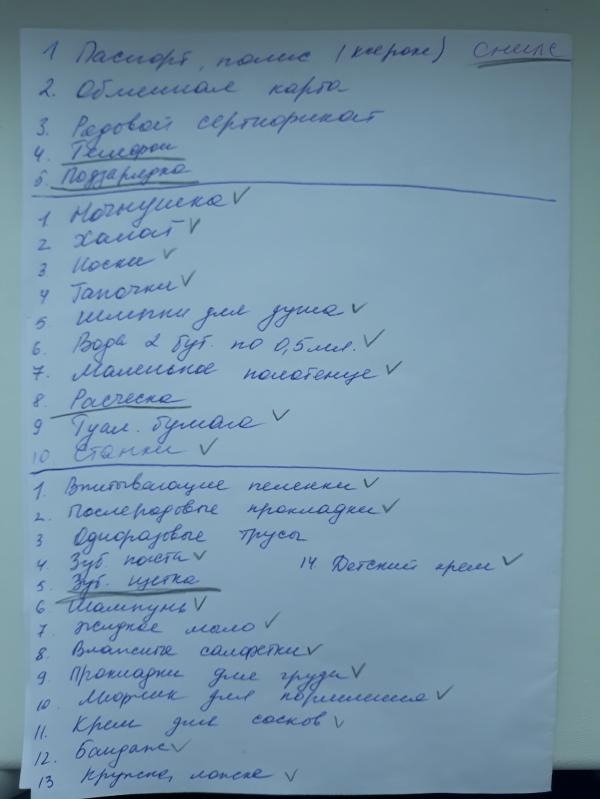 1 Паспорт, полис (ксерок) СНИЛС
2. Обменная карта
3. Родовой сертификат
4. Телефон
5. Подзарядка
1 Ночнушка ✓
2 Халат ✓
3 Носки ✓
4 Тапочки ✓
5 Шлепки для душа ✓
6. Вода 2 бут. по 0,5мл. ✓
7. Маленькое полотенце ✓
8. Расческа
9 Туал. бумага ✓
10 Станки ✓
1. Впитывающие пеленки ✓
2. Послеродовые прокладки ✓
3 Одноразовые трусы
4 Зуб. паста ✓ 14. Детский крем ✓
5. Зуб. щетка
6 Шампунь ✓
7. Жидкое мыло ✓
8. Влажные салфетки ✓
9. Прокладки для груди ✓
10. Лифчик для кормления ✓
11. Крем для сосков ✓
12. Бандаж ✓
13 Кружка, ложка ✓